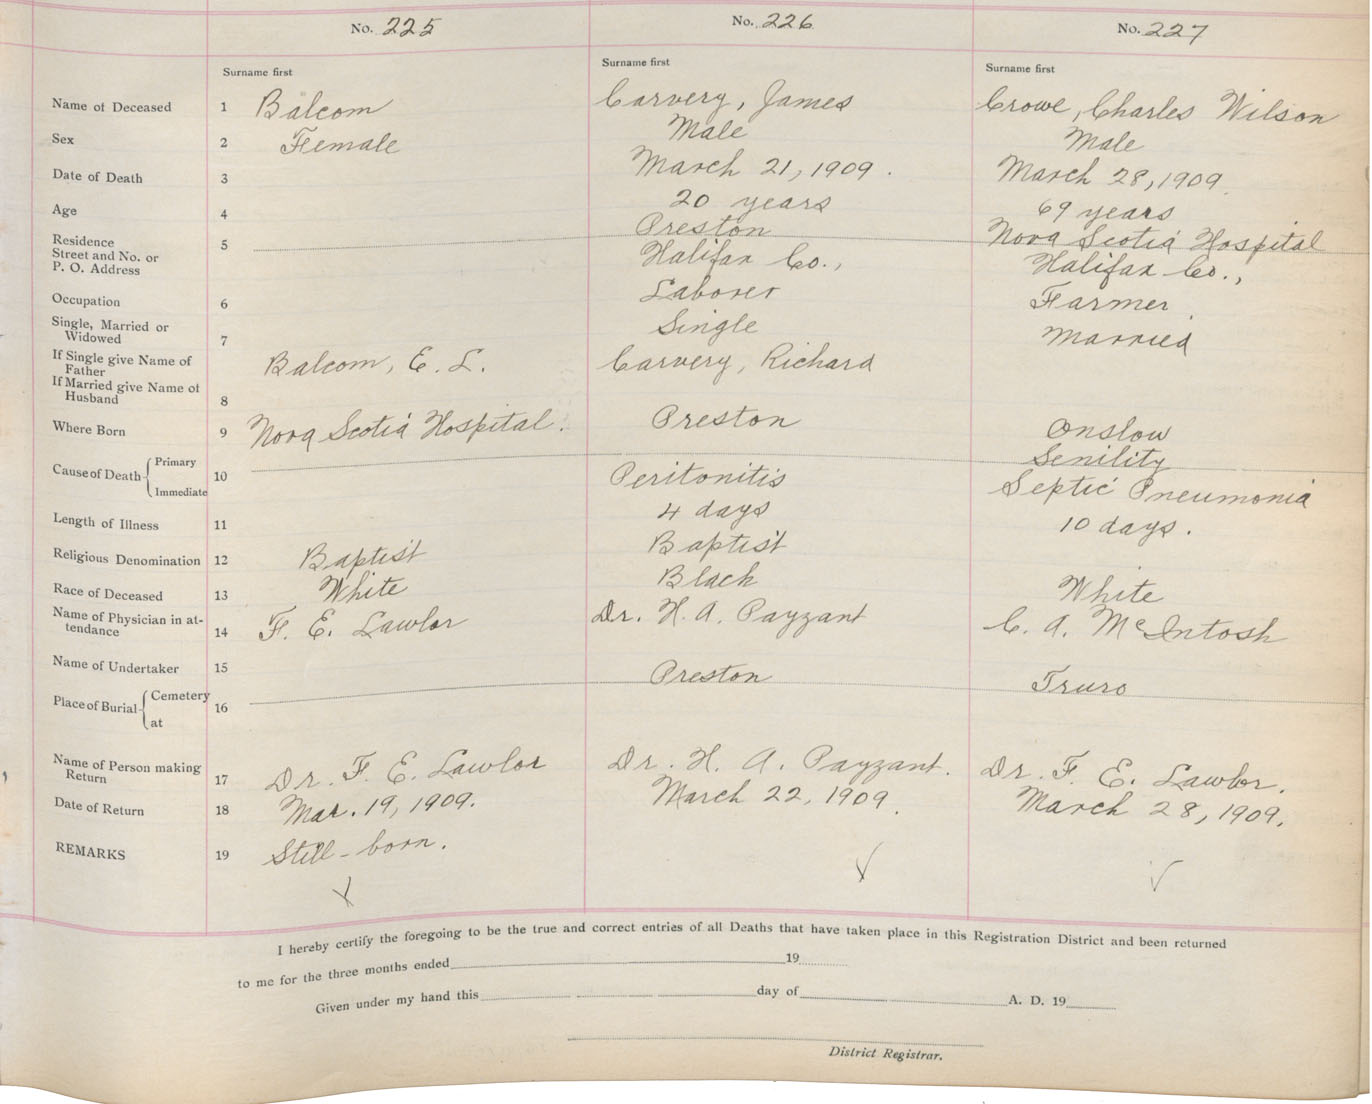 No. 225 No. 226 No. 227
Surname first Surname first Surname first
Name of Deceased 1 Balcom Carvery, James Crowe, Charles Wilson
Sex 2 Female Male Male
Date of Death 3 March 21, 1909. March 28, 1909.
Age 4 20 years 69 years
Residence 5 Preston Nova Scotia Hospital
Street and No. or
P. O. Address Halifax Co., Halifax Co.,
Occupation 6 Laborer Farmer
Single, Married or
Widowed 7 Single Married
If Single give Name of
Father Balcom, E. L. Carvery, Richard
If Married give Name of
Husband 8
Where Born 9 Nova Scotia Hospital. Preston Onslow
Cause of Death Primary 10 Senility
Immediate Peritonitis Septic Pneumonia
Length of Illness 11 4 days 10 days.
Religious Denomination 12 Baptist Baptist
Race of Deceased 13 White Black White
Name of Physician in at-
tendance 14 F. E. Lawlor Dr. H. A. Payzant C. A. McIntosh
Name of Undertaker 15
Place of Burial Cemetery 16 Preston Truro
at
Name of Person making
Return 17 Dr. F. E. Lawlor Dr. H. A. Payzant. Dr. F. E. Lawlor.
Date of Return 18 Mar. 19, 1909. March 22, 1909. March 28, 1909.
REMARKS 19 Still-born.
I hereby certify the foregoing to be the true and correct entries of all Deaths that have taken place in this Registration District and been returned
to me for the three months ended 19
Given under my hand this day of A. D. 19
District Registrar.